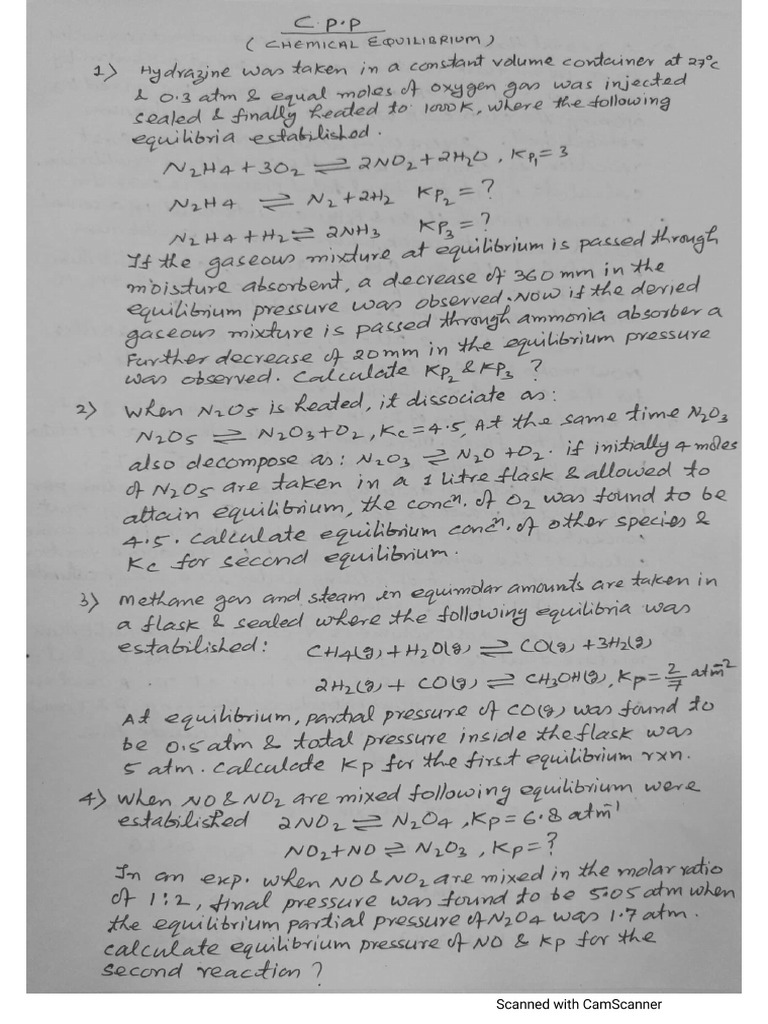 C.P.P
( CHEMICAL EQUILIBRIUM )
1) Hydrazine was taken in a constant volume container at 27°C
& 0.3 atm & equal moles of oxygen gas was injected
sealed & finally heated to 1000K, where the following
equilibria estabilished.
N2H4 + 3O2 ⇌ 2NO2 + 2H2O, Kp1 = 3
N2H4 ⇌ N2 + 2H2 Kp2 = ?
N2H4 + H2 ⇌ 2NH3 Kp3 = ?
If the gaseous mixture at equilibrium is passed through
moisture absorbent, a decrease of 360 mm in the
equilibrium pressure was observed. Now if the deried
gaseous mixture is passed through ammonia absorber a
further decrease of 20mm in the equilibrium pressure
was observed. Calculate Kp2 & Kp3 ?
2) When N2O5 is heated, it dissociate as:
N2O5 ⇌ N2O3 + O2, Kc = 4.5, At the same time N2O3
also decompose as: N2O3 ⇌ N2O + O2. if initially 4 moles
of N2O5 are taken in a 1 litre flask & allowed to
attain equilibrium, the concn. of O2 was found to be
4.5. calculate equilibrium concn. of other species &
Kc for second equilibrium.
3) Methane gas and steam in equimolar amounts are taken in
a flask & sealed where the following equilibria was
estabilished: CH4(g) + H2O(g) ⇌ CO(g) + 3H2(g)
2H2(g) + CO(g) ⇌ CH3OH(g), Kp = 2/7 atm-2
At equilibrium, partial pressure of CO(g) was found to
be 0.5atm & total pressure inside the flask was
5 atm. calculate Kp for the first equilibrium rxn.
4) When NO & NO2 are mixed following equilibrium were
estabilished 2NO2 ⇌ N2O4, Kp = 6.8 atm-1
NO2 + NO ⇌ N2O3, Kp = ?
In an exp. when NO & NO2 are mixed in the molar ratio
of 1:2, final pressure was found to be 5.05 atm when
the equilibrium partial pressure of N2O4 was 1.7 atm.
calculate equilibrium pressure of NO & Kp for the
second reaction ?
Scanned with CamScanner